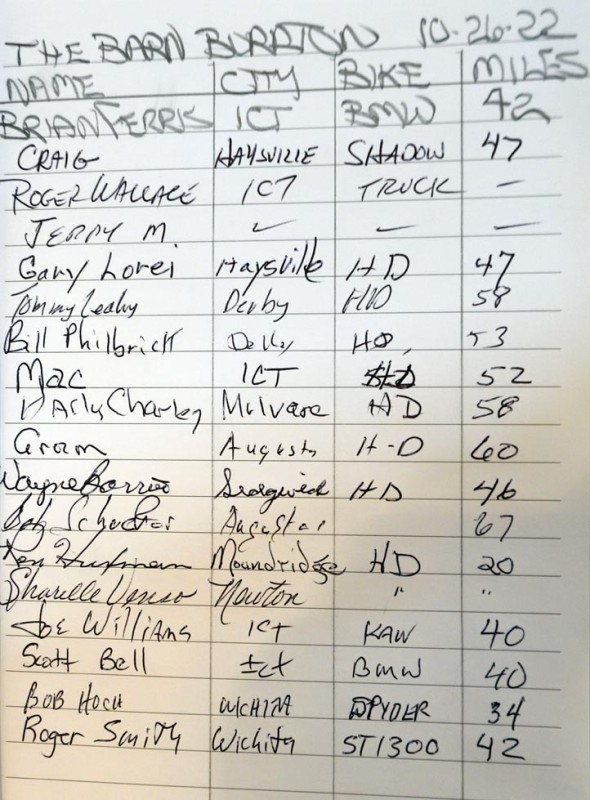 THE BARN BURRTON 10-26-22
NAME CITY BIKE MILES
BRIAN FERRIS ICT BMW 42
CRAIG HAYSVILLE SHADOW 47
ROGER WALLACE ICT TRUCK —
JERRY M. ✓ — —
Gary Lorei Haysville HD 47
Tommy Leahy Derby HD 58
Bill Philbrick Derby HD, 53
Mac ICT HD 52
Charley Mulvane HD 58
Gram Augusta H-D 60
Wayne Barrios Sedgwick HD 46
Bob Augusta 67
Moundridge HD 20
Sharelle Newton " "
Joe Williams ICT KAW 40
Scott Bell Ict BMW 40
BOB HOCH WICHITA SPYDER 34
Roger Smith Wichita ST1300 42